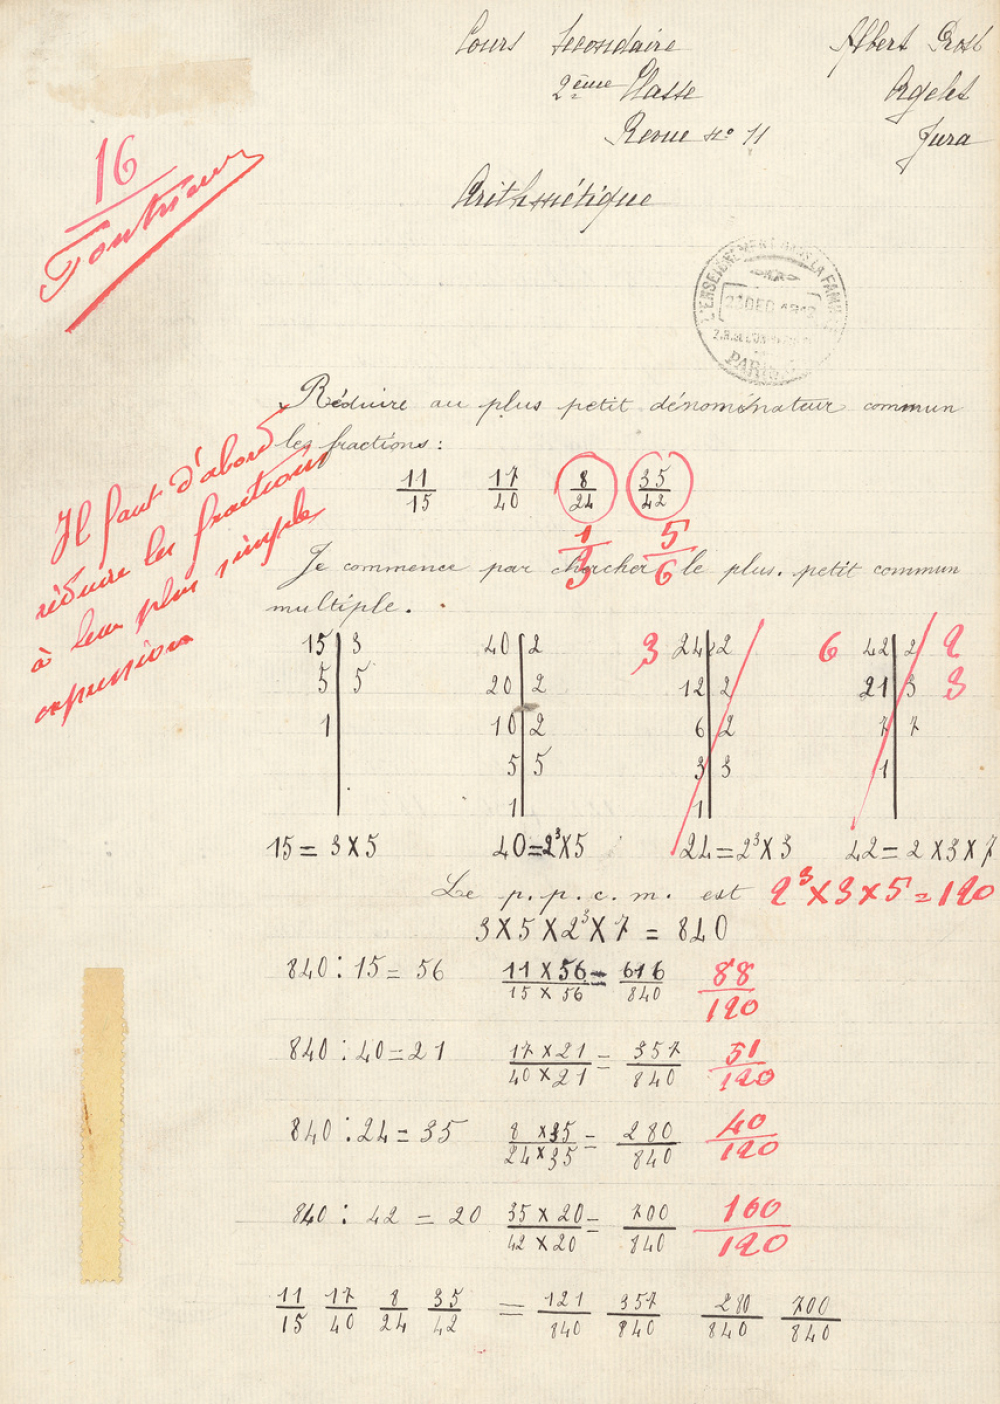 Cours Secondaire
2ème Classe
Revue No 11
Albert Prost
Orgelet
Jura
16
Arithmétique
L'ENSEIGNEMENT DANS LA FAMILLE
DEC
PARIS
Réduire au plus petit dénominateur commun
les fractions:
11/15 17/40 8/24 35/42
1/3 5/6
Il faut d'abord
réduire les fractions
à leur plus simple
expression
Je commence par chercher le plus. petit commun
multiple.
15 | 3 40 | 2 3 24 | 2 6 42 | 2 2
5 | 5 20 | 2 12 | 2 21 | 3 3
1 10 | 2 6 | 2 7 | 7
5 | 5 3 | 3 1
1 1
15 = 3 X 5 40 = 2³X5 24 = 2³X3 42 = 2 X 3 X 7
Le p. p. c. m. est 2³ X 3 X 5 = 120
3 X 5 X 2³ X 7 = 840
840 : 15 = 56 11 X 56 / 15 X 56 = 616/840 88/120
840 : 40 = 21 17 X 21 / 40 X 21 = 357/840 51/120
840 : 24 = 35 8 X 35 / 24 X 35 = 280/840 40/120
840 : 42 = 20 35 X 20 / 42 X 20 = 700/840 100/120
11/15 17/40 8/24 35/42 = 121/840 357/840 280/840 700/840